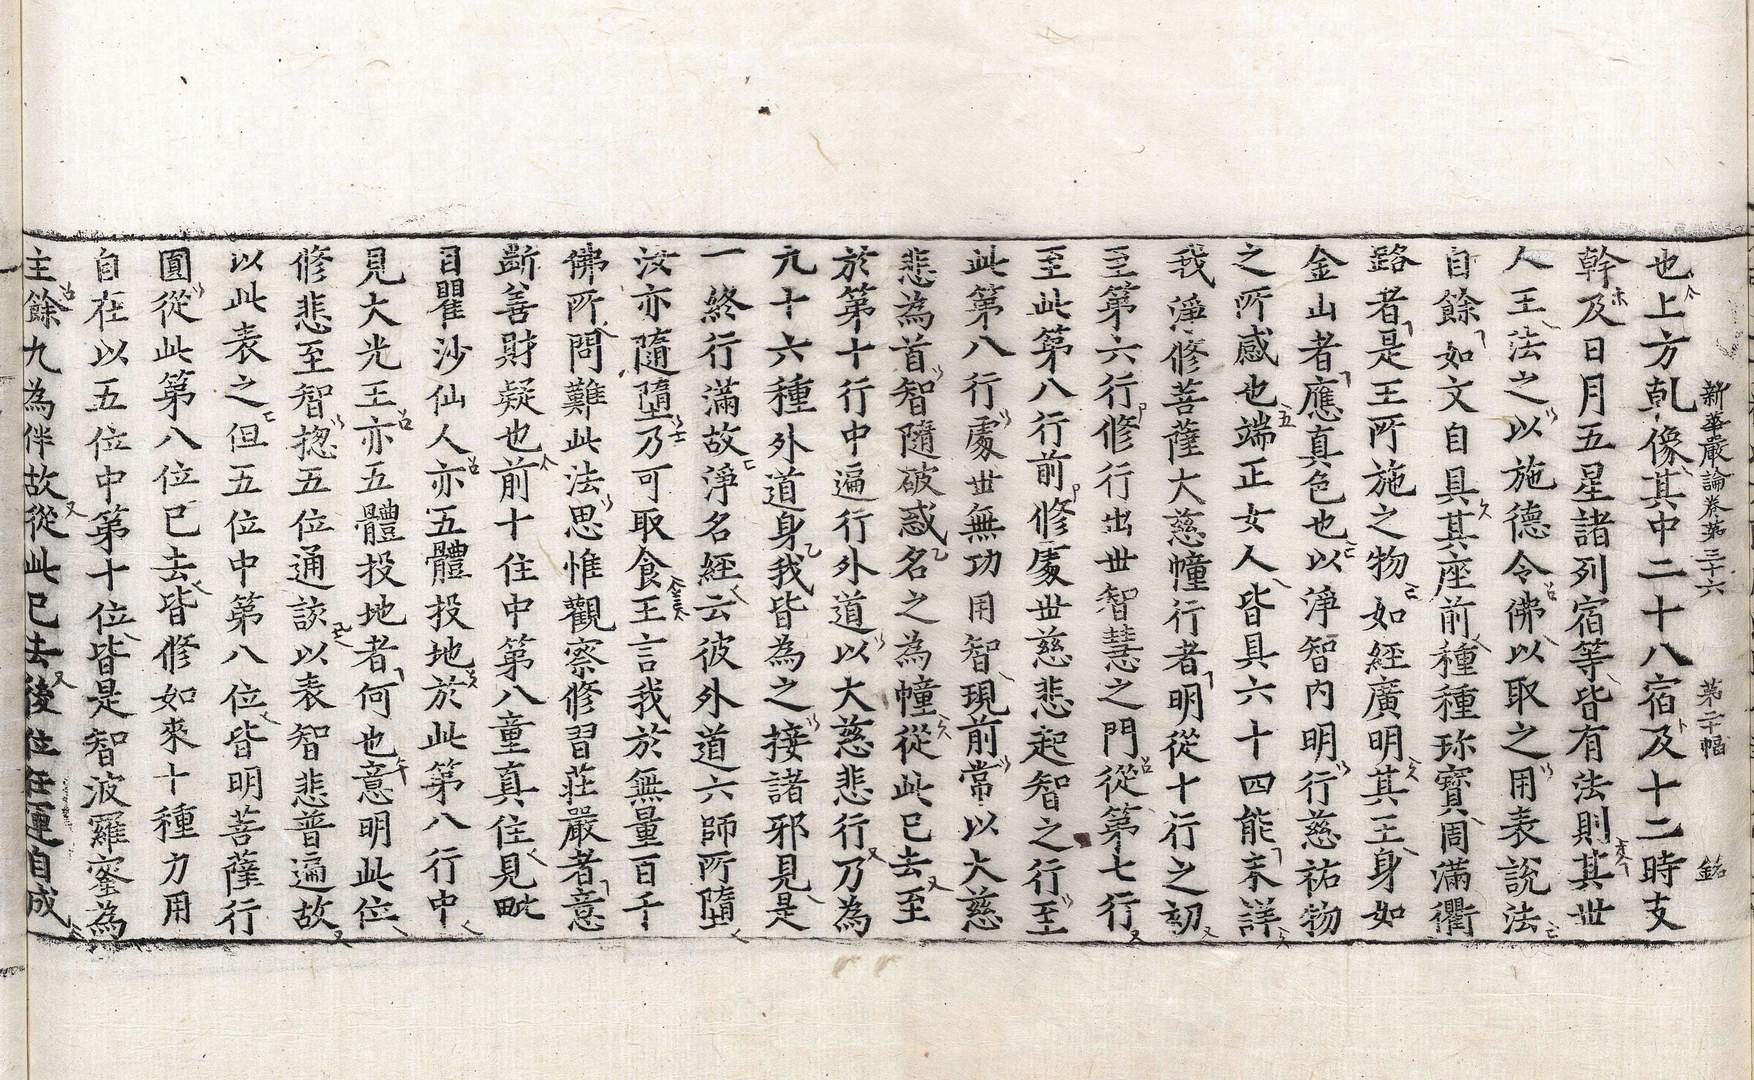 新華嚴論卷第三十六　第二十幅　銘
也上方乹像其中二十八宿及十二時支
幹及日月五星諸列宿等皆有法則其世
人王法之以施德令佛以取之用表說法
自餘如文自具其座前種種珎寶周滿衢
路者是王所施之物如經廣明其王身如
金山者應真色也以淨智內明行慈祐物
之所感也端正女人皆具六十四能未詳
我淨修菩薩大慈幢行者明從十行之初
至第六行修行出世智慧之門從第七行
至此第八行前修處世慈悲起智之行至
此第八行處世無功用智現前常以大慈
悲為首智隨破惑名之為幢從此已去至
於第十行中遍行外道以大慈悲行乃為
九十六種外道身我皆為之接諸邪見是
一終行滿故淨名經云彼外道六師所墮
汝亦隨墮乃可取食王言我於無量百千
佛所問難此法思惟觀察修習莊嚴者意
斷善財疑也前十住中第八童真住見毗
目瞿沙仙人亦五體投地於此第八行中
見大光王亦五體投地者何也意明此位
修悲至智揔五位通該以表智悲普遍故
以此表之但五位中第八位皆明菩薩行
圓從此第八位已去皆修如來十種力用
自在以五位中第十位皆是智波羅蜜為
主餘九為伴故從此已去後位任運自成